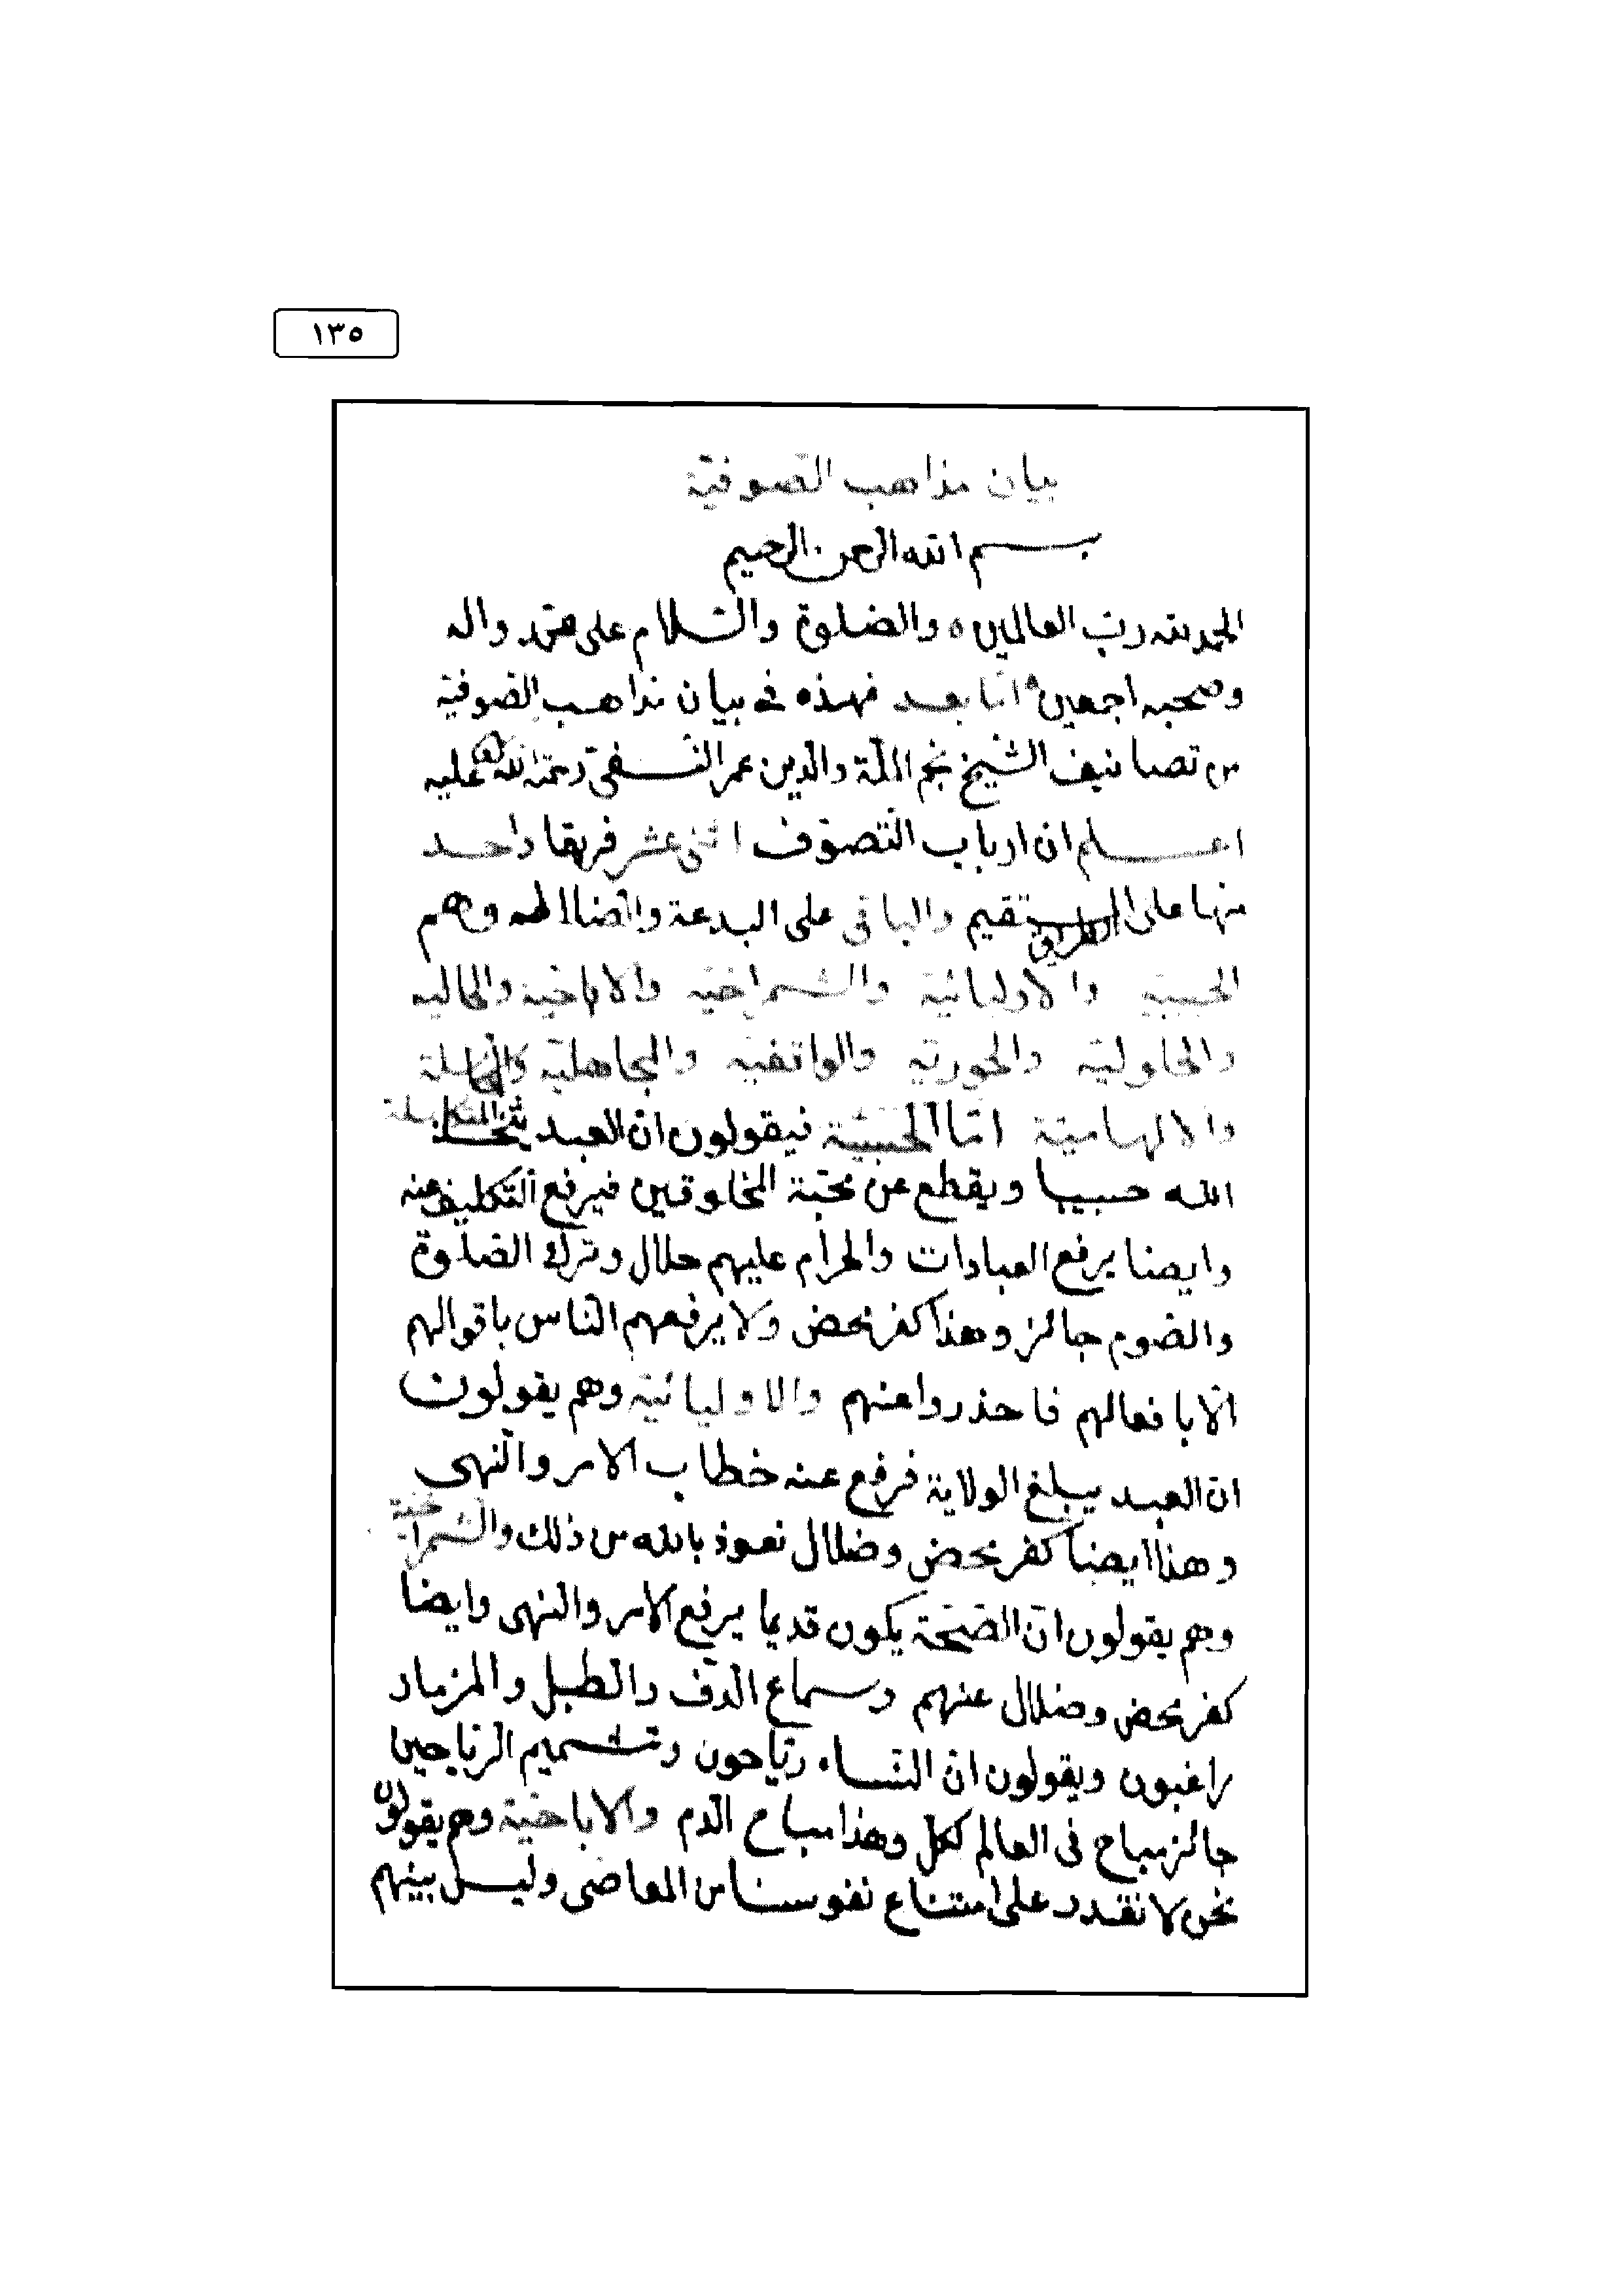 ١٣٥
بيان مذاهب التصوفية
بسم الله الرحمن الرحيم
الحمد لله رب العالمين والصلوة والسلام على محمد واله
وصحبه اجمعين اما بعد فهذه فى بيان مذاهب الصوفية
من تصانيف الشيخ نجم الملة والدين عمر النسفى رحمة الله عليه
اعلم ان ارباب التصوف اثنى عشر فريقا واحد
منها على الطريق المستقيم والباقى على البدعة والضلالة وهم
الحبيبية والاوليائية والشمراخية والاباحية والحالية
والحلولية والحورية والواقفية والمتجاهلية والمتكاسلة
والالهامية اما الحبيبية فيقولون ان العبد يتخذ
الله حبيبا ويقطع عن محبة المخلوقين فيرفع التكليف عنه
وايضا يرفع العبادات والحرام عليهم حلال وترك الصلوة
والصوم جائز وهذا كفر محض ولا يرفعهم الناس باقوالهم
الا بافعالهم فاحذروا عنهم والاوليائية وهم يقولون
ان العبد يبلغ الولاية فرفع عنه خطاب الامر والنهى
وهذا ايضا كفر محض وضلال نعوذ بالله من ذلك والشمراخية
وهم يقولون ان الصحبة يكون قديما يرفع الامر والنهى وايضا
كفر محض وضلال عنهم وسماع الدف والطبل والمزمار
راغبون ويقولون ان النساء رياحون وتشميم الرياحين
جائز مباح فى العالم لكل وهذا مباح الدم والاباحية وهم يقولون
نحن لا نقدر على امتناع نفوسنا من المعاصى وليس بينهم